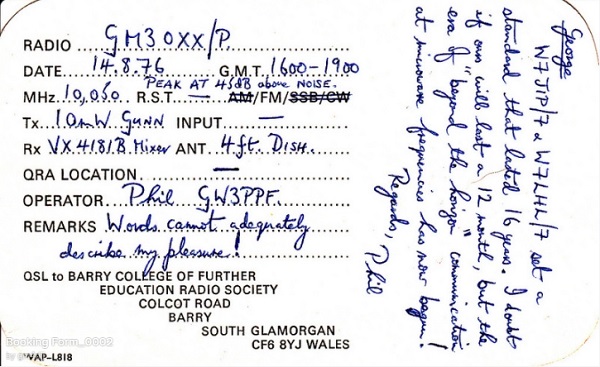 RADIO GM3OXX/P.
DATE 14.8.76 G.M.T. 1600-1900
PEAK AT 45dB above NOISE.
MHz 10,050 R.S.T. — AM/FM/SSB/CW
Tx 10mW GUNN INPUT —
Rx VX4181B Mixer ANT. 4ft. DISH.
QRA LOCATION —
OPERATOR Phil GW3PPF.
REMARKS Words cannot adequately
describe my pleasure!
QSL to BARRY COLLEGE OF FURTHER
EDUCATION RADIO SOCIETY
COLCOT ROAD
BARRY
SOUTH GLAMORGAN
CF6 8YJ WALES
WAP-L818
George
W7JIP/7 & W7LHL/7 set a
standard that lasted 16 years. I doubt
if ours will last a 12 month, but the
era of "beyond the horizon" communication
at microwave frequencies has now begun!
Regards, Phil
Booking Farm_0002